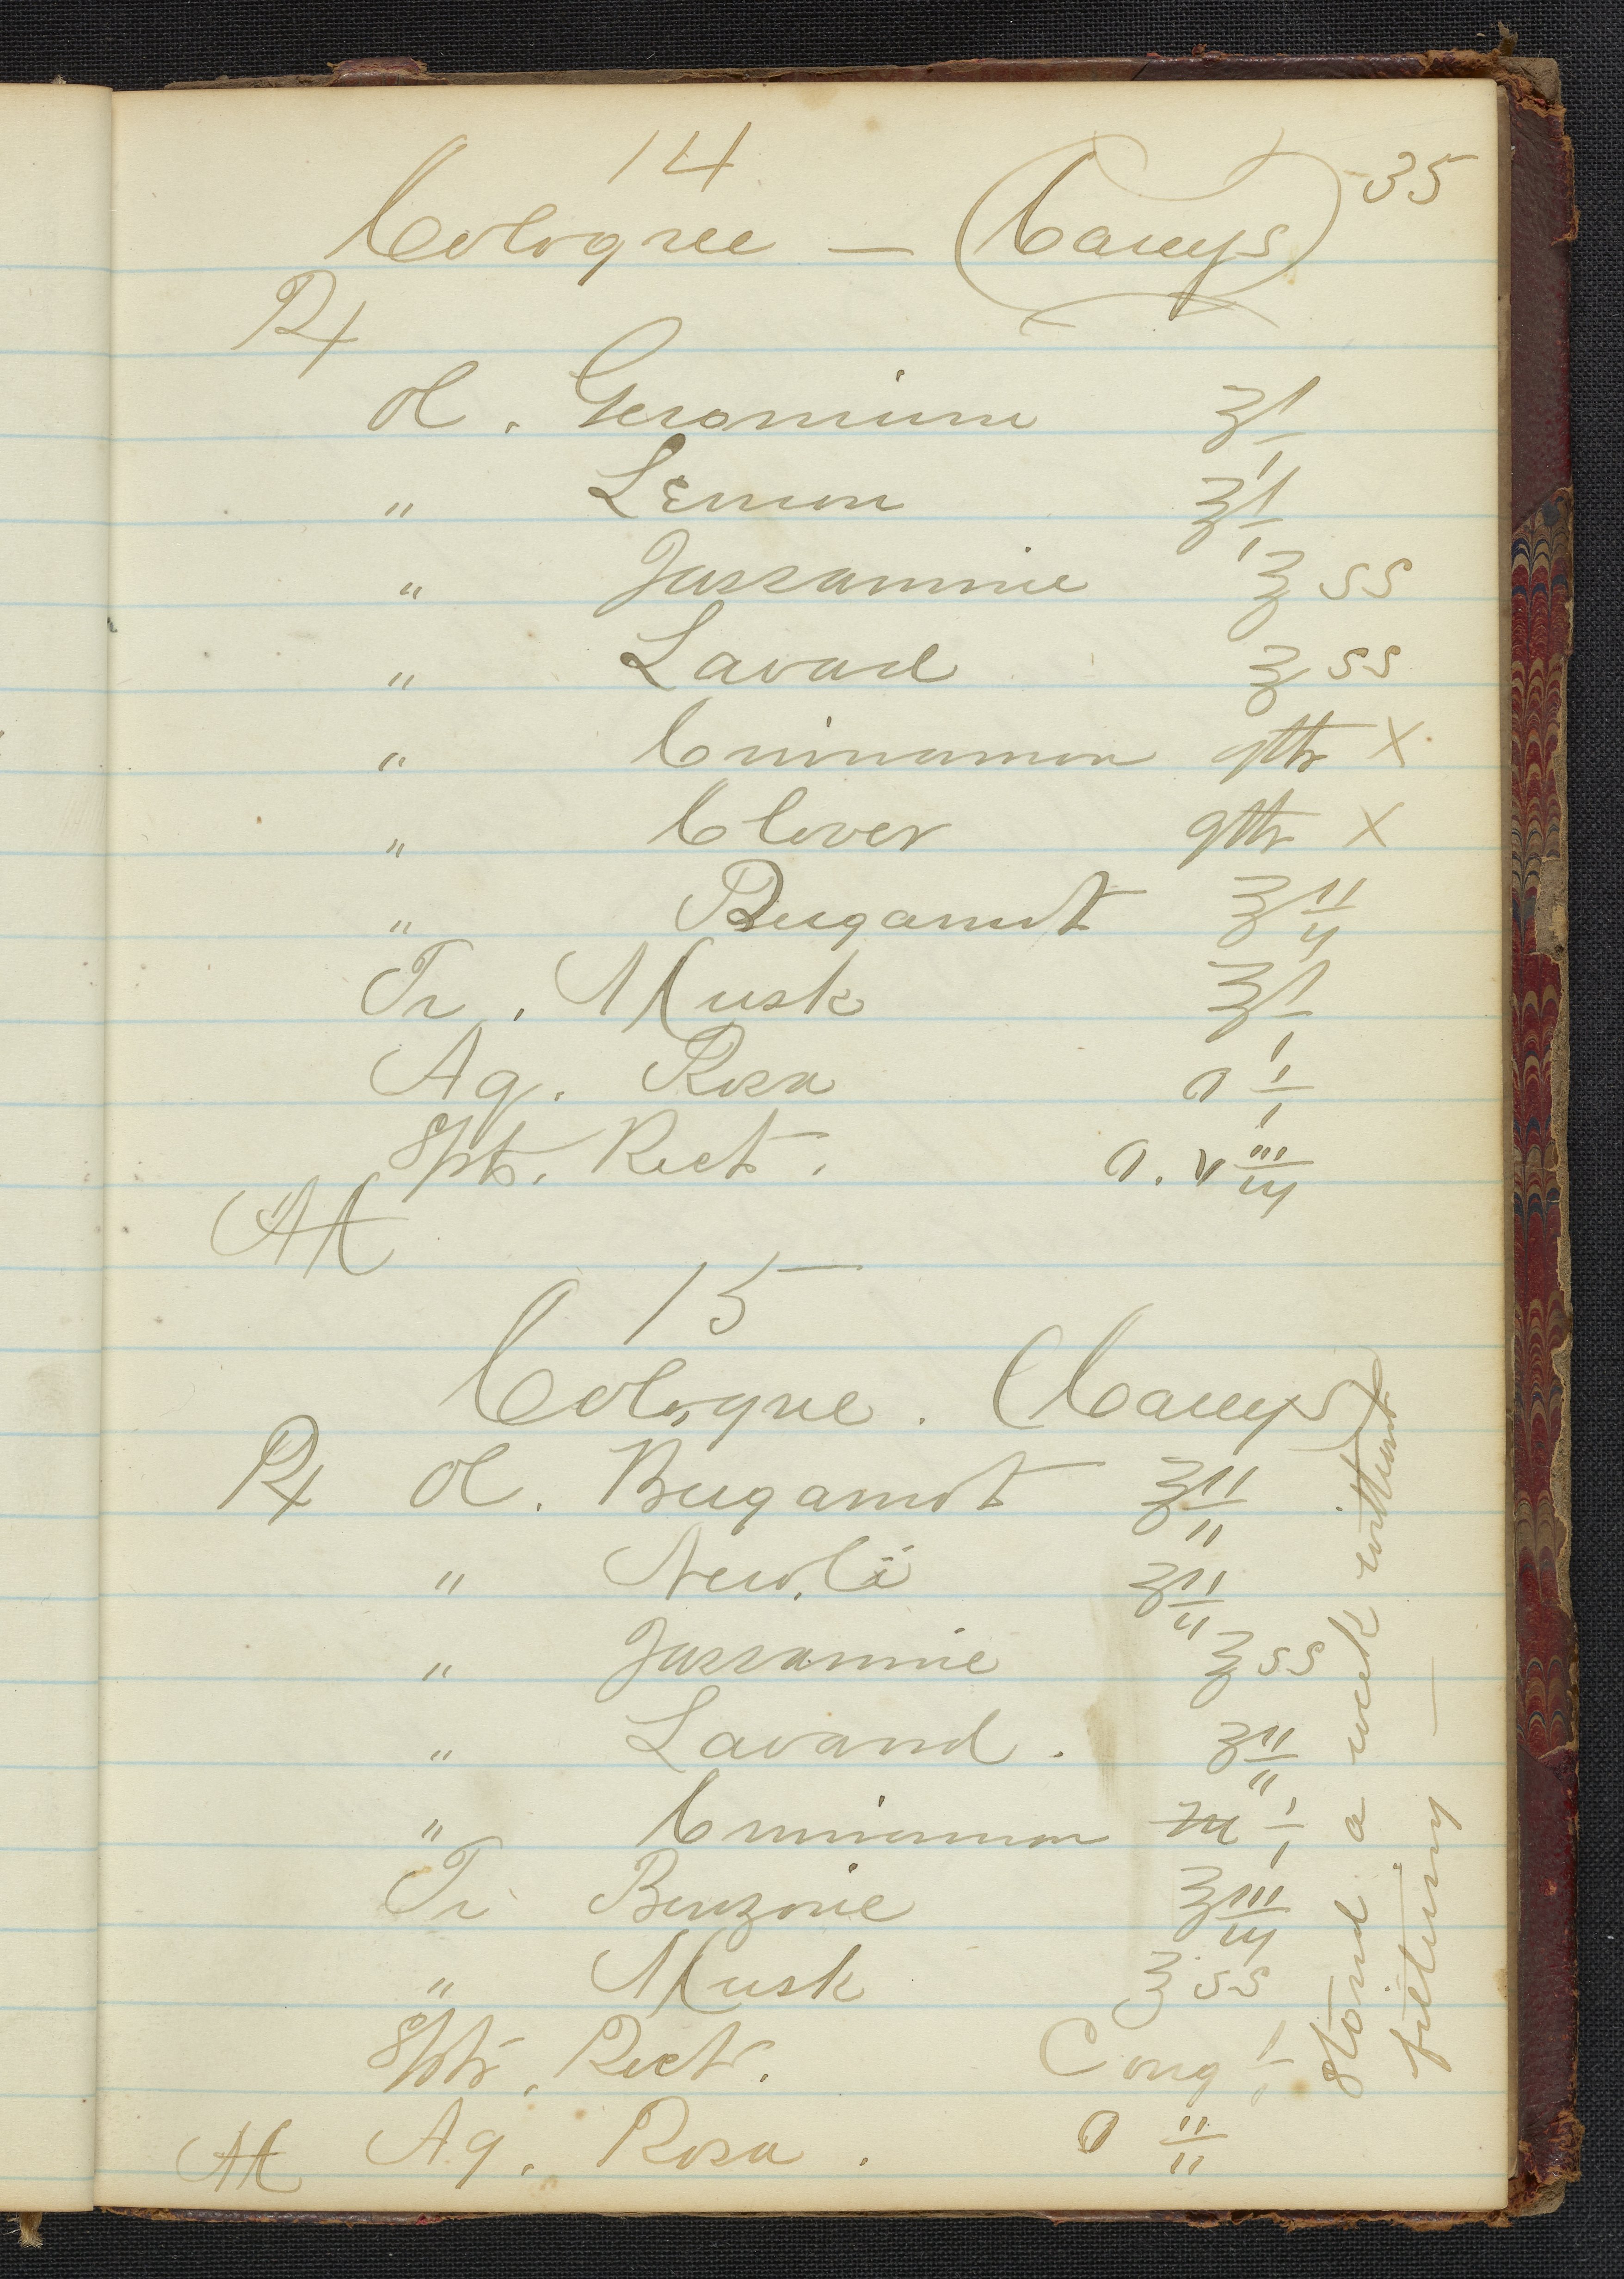 14
35
Cologne — (Careys)
Rx
Ol. Geranium ʒ i
" Lemon ʒ i
" Jassamine ℥ ss
" Lavand ℥ ss
" Cinnamon gtts X
" Clover gtts X
" Bergamot ʒ ii
Tr. Musk ʒ i
Aq. Rosa O i
Spts. Rect. O. viii
M
15
Cologne. (Careys)
Rx Ol. Bergamot ʒ ii
" Neroli ʒ ii
" Jassamine ℥ ss
" Lavand. ʒ ii
" Cinnamon ♏ i
Tr Benzoine ʒ iii
" Musk ℥ ss
Spts. Rect. Cong i
M Aq. Rosa. O ii
Stand a week without
filtering —